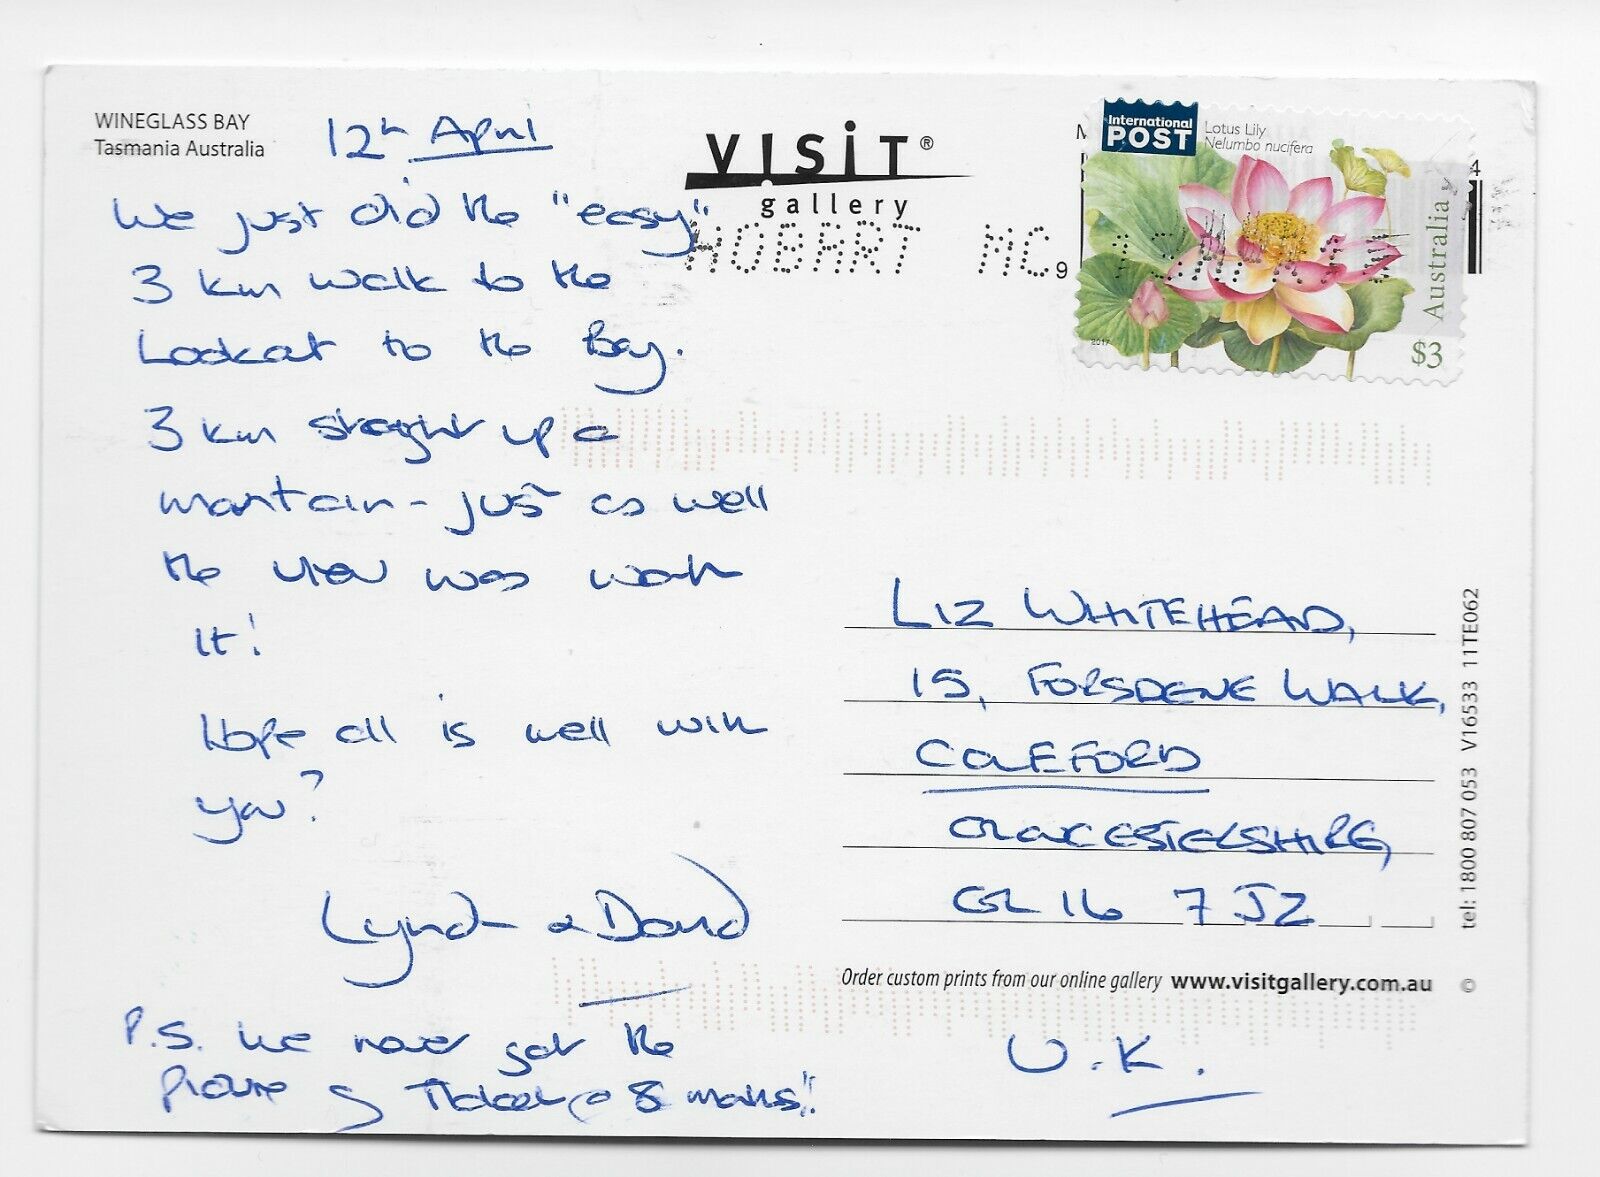 WINEGLASS BAY
Tasmania Australia
12th April
We just did the "easy"
3 km walk to the
Lookout to the Bay.
3 km straight up a
mountain - just as well
the view was worth
it!
Hope all is well with
you?
Lynda & David
P.S. We never got the
Picture of Tickets @ 8 months!!
VISIT®
gallery
HOBART MC
International
POST
Lotus Lily
Nelumbo nucifera
Australia
2017
$3
LIZ WHITEHEAD,
15, FORSDENE WALK,
COLEFORD
GLOUCESTERSHIRE,
GL16 7JZ
U.K.
Order custom prints from our online gallery www.visitgallery.com.au ©
tel: 1800 807 053 V16533 11TE062